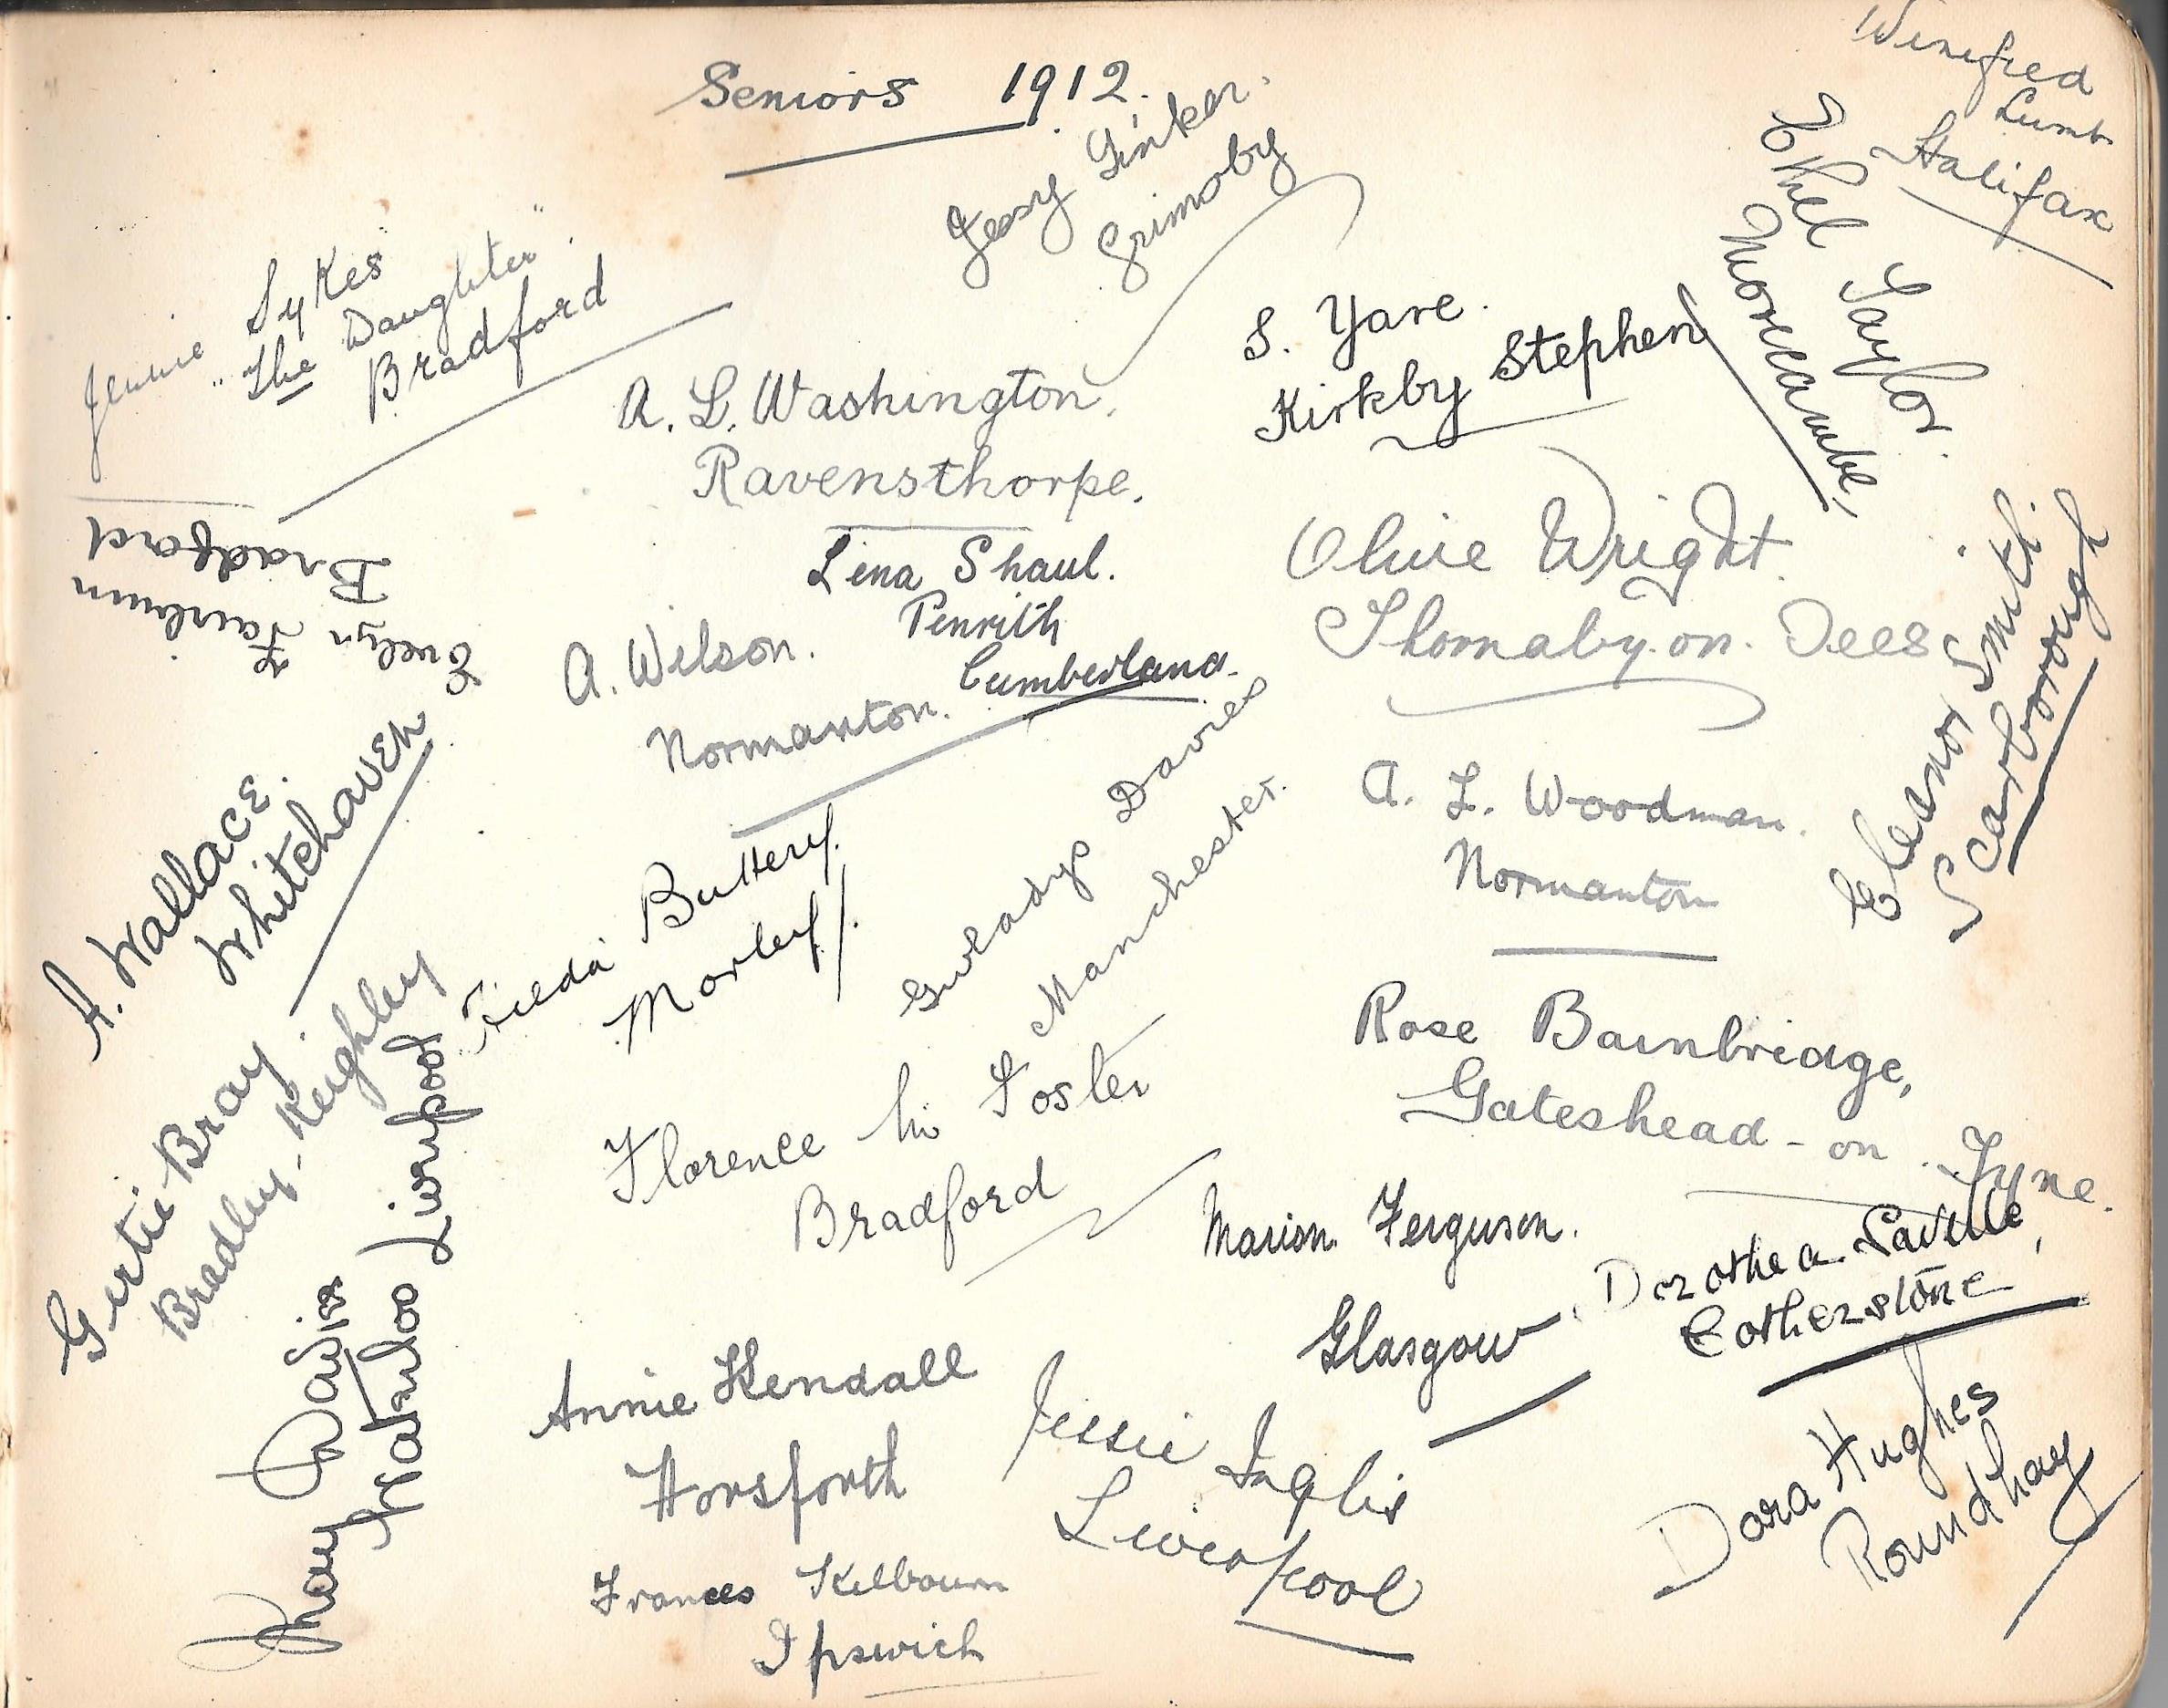 Seniors 1912.
Winifred
Lumb
Halifax
Jessy Tinker.
Grimsby
Ethel Taylor.
Morecambe,
Jennie Sykes
"The Daughter".
Bradford
S. Yare.
Kirkby Stephen
A. L. Washington.
Ravensthorpe.
Evelyn
Bradford
Lena Shaul.
Penrith
Cumberland.
Olive Wright.
Thornaby. on. Tees
Eleanor Smith.
Scarborough
A. Wilson.
Normanton.
A. Wallace.
Whitehaven
A. L. Woodman.
Normanton
Gwladys Davies
Manchester.
Frieda Buttery.
Morley.
Gertie Bray
Bradley-Keighley
Rose Bainbridge,
Gateshead-on-Tyne.
Florence M. Foster
Bradford
Marion Ferguson.
Glasgow
Dorothea Saville,
Cotherstone
May Davis
Waterloo Liverpool
Annie Kendall
Horsforth
Jessie Inglis
Liverpool
Dora Hughes
Roundhay
Frances Kilbourn
Ipswich